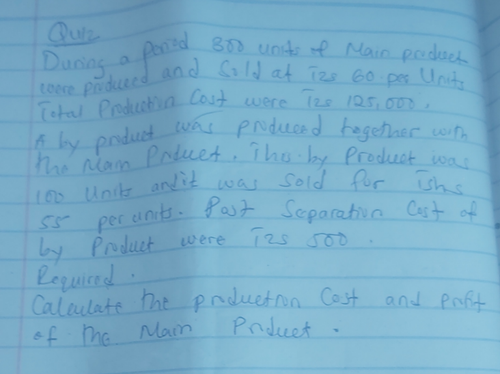 Quiz
During a period 800 units of Main product
were produced and Sold at Tzs 60 per Units
Total Production Cost were Tzs 125,000.
A by product was produced together with
the Main Product. The by Product was
100 Units and it was Sold for Tshs
55 per units. Post Separation Cost of
by Product were Tzs 500.
Required.
Calculate the production Cost and profit
of the Main Product.